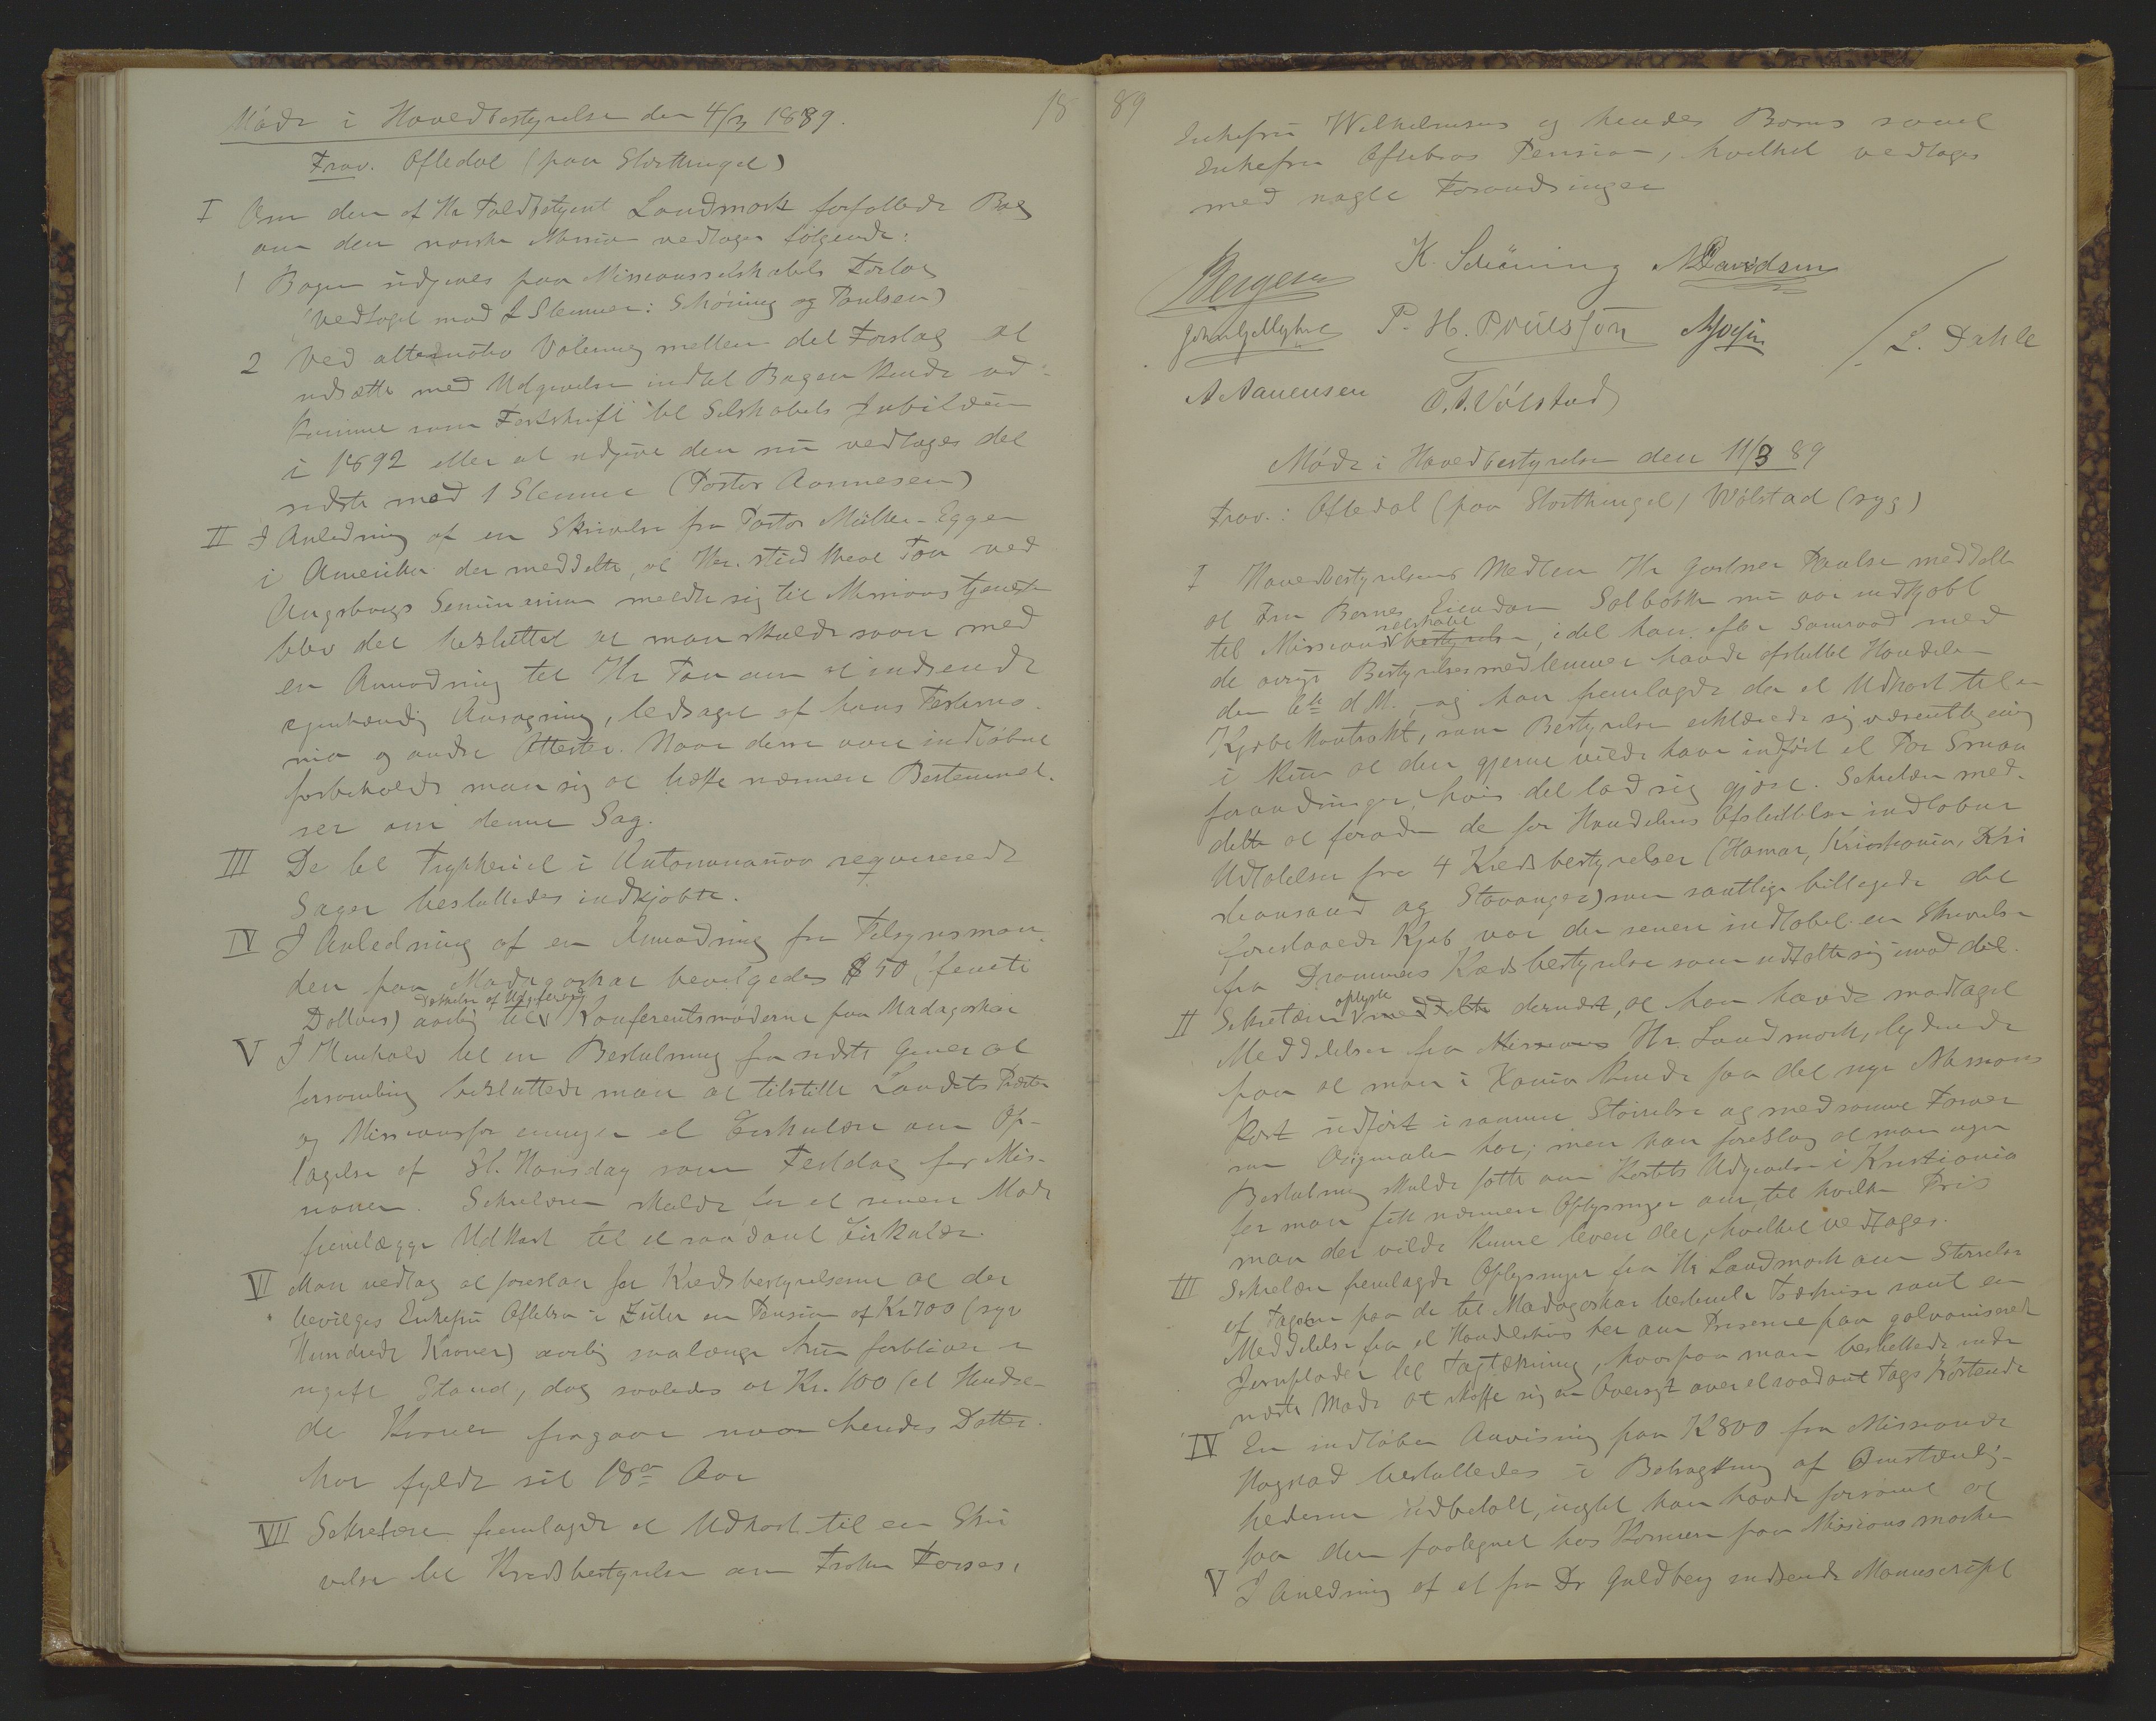 Møde i Hovedbestyrelsen den 4/3 1889.
18
Frav. Oftedal (paa Storthinget)
I Om den af Hr Toldbetjent Landmark forfattede Bog
om den norske Mission vedtages følgende:
1 Bogen udgives paa Missionsselskabets Forlag
(vedtaget mod 2 Stemmer: Schøning og Poulsen)
2 Ved alternativ Votering mellem det Forslag at
udsætte med Udgivelsen indtil Bogen kunde ud-
komme som Festskrift til Selskabets Jubilæum
i 1892 eller at udgive den nu vedtages det
sidste mod 1 Stemme (Pastor Aanensen)
II I Anledning af en Skrivelse fra Pastor Müller-Eggen
i Amerika der meddelte, at Hr. stud theol Tou ved
Augsburgs Seminarium meldte sig til Missionstjeneste
blev det besluttet at man skulde svare med
en Anmodning til Hr Tou om at indsende
egenhændig Ansøgning, ledsaget af hans Testimo-
nia og andre Attester. Naar disse vare indløbne
forbeholdt man sig at træffe nærmere Bestemmel-
ser om denne Sag.
III De til Trykkeriet i Antananarivo requirerede
Sager besluttedes indkjøbte.
IV I Anledning af en Anmodning fra Tilsynsman-
den paa Madagaskar bevilgedes $ 50 (femti
Dollars) aarlig til Dækkelse af Udgifterne Konferentsmøderne paa Madagaskar
V I Henhold til en Beslutning fra sidste General
forsamling besluttede man at tilstille Landets Præster
og Missionsforeninger et Cirkulære om Op-
tagelse af St. Hansdag som Festdag for Mis-
sionen. Sekretæren skulde til et senere Møde
fremlægge Udkast til et saadant Cirkulære.
VI Man vedtog at foreslaa for Kredsbestyrelserne at der
bevilges Enkefru Oftebro i Zulu en Pension af Kr 700 (syv
Hundrede Kroner) aarlig saalænge hun forbliver i
ugift Stand, dog saaledes at Kr. 100 (et Hundre-
de Kroner fragaar naar hendes Datter
har fyldt sit 18de Aar
VII Sekretæren fremlagde et Udkast til en Skri
velse til Kredsbestyrelsen om Frøken Forses,
89
Enkefru Wilhelmsens og hendes Barns samt
Enkefru Oftebros Pension, hvilket vedtages
med nogle Forandringer
Bergesen K. Schöning N Davidsen
Johan Gjellestad P. H. Poulsson L. Dahle
A Aanensen O. T. Vólstad
Møde i Hovedbestyrelsen den 11/3 89
Frav.: Oftedal (paa Storthinget) Wólstad (syg)
I Hovedbestyrelsens Medlem Hr Gartner Poulsen meddelte
at Fru Bernes Eiendom Solbakk nu var indkjøbt
til Missionsselskabet bestyrelsen, idet han efter Samraad med
de øvrige Bestyrelsesmedlemmer havde afsluttet Handelen
den 6te d M. og han fremlagde da et Udkast til en
Kjøbekontrakt, som Bestyrelsen erklærede sig væsentlig enig
i kun at den gjerne vilde have indført et Par Smaa
forandringer, hvis det lod sig gjøre. Sekretæren med-
delte at foruden de før Handelens Afsluttelse indløbne
Udtalelser fra 4 Kredsbestyrelser (Hamar, Kristiania, Kri
stiansand og Stavanger) som samtlige billigede det
foreslaaede Kjøb var der senere indløbet en Skrivelse
fra Drammens Kredsbestyrelse som udtalte sig imod det.
II Sekretæren oplyste meddelte dernæst, at han havde modtaget
Meddelelse fra Missions Hr Landmark, lydende
paa at man i Xania kunde faa det nye Missions
Kort udført i samme Størrelse og med samme Farver
som Originalen har; men han foreslog at man ingen
Beslutning skulde fatte om Kortets Udgivelse i Kristiania
før man fik nærmere Oplysninger om, til hvilken Pris
man der vilde kunne levere det, hvilket vedtages.
III Sekretæren fremlagde Oplysninger fra Hr Landmark om Størrelsen
af Tagene paa de til Madagaskar bestemte Træhuse samt en
Meddelelse fra et Handelshus her om Priserne paa galvaniserede
Jernplader til Tagtækning, hvorpaa man besluttede inden
næste Møde at skaffe sig en Oversigt over et saadant Tags Kostende
IV En indløben Anvisning paa K 800 fra Missionær
Hogstad besluttedes i Betragtning af Omstændig-
hederne udbetalt, uagtet han havde forsømt at
faa den paategnet hos Kassereren paa Missionsmarken
V I Anledning af et fra Dr Guldberg indsendt Manuscript